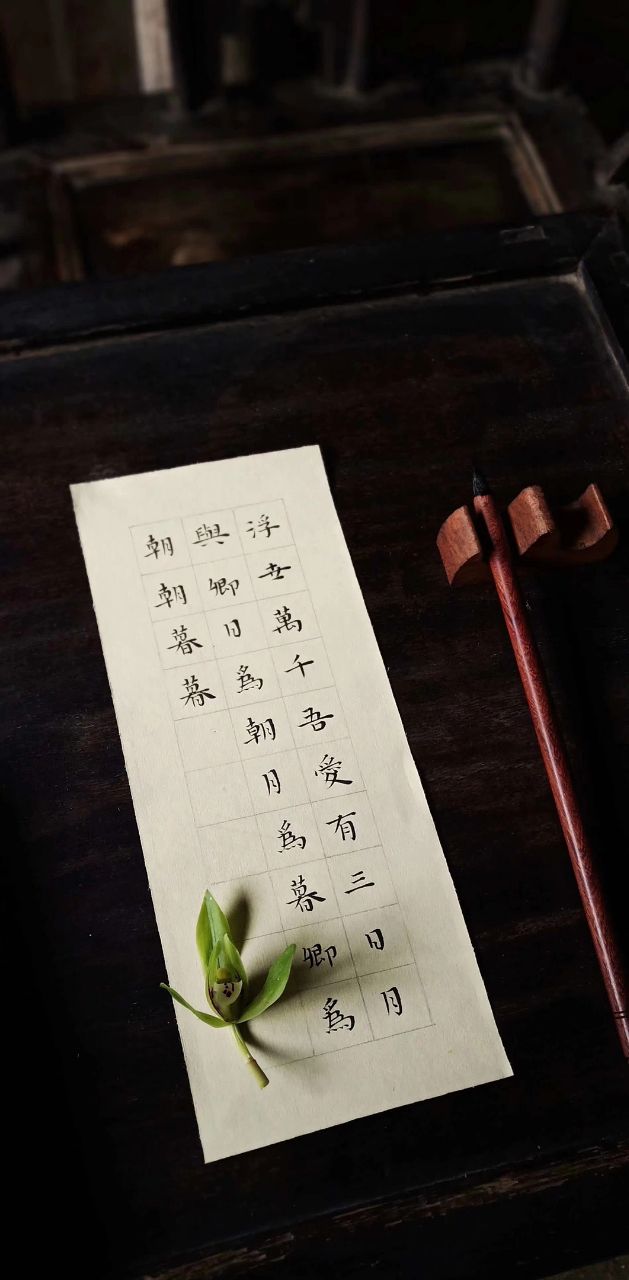 浮世萬千吾愛有三日月
與卿日為朝月為暮卿為
朝朝暮暮